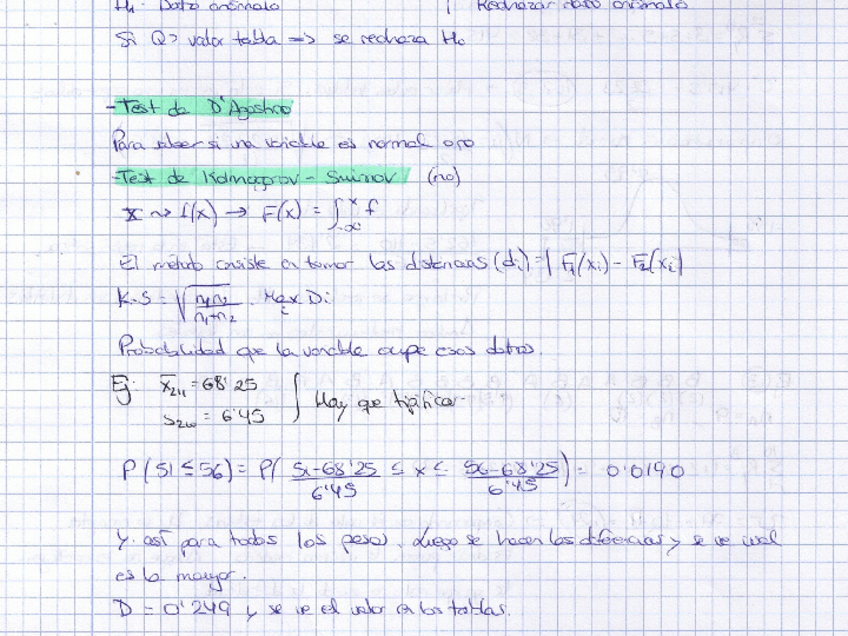 H₁: Dato anómalo | Rechazar dato anómalo
Si Q > valor tabla => se rechaza H₀
- Test de D'Agostino
Para saber si una variable es normal o no
- Test de Kolmogrov - Smirnov (no)
X ~> f(x) → F(x) = ∫_{-∞}^{x} f
El método consiste en tomar las distancias (di) = | F₁(xi) - F₂(xi) |
K.S = √(n₁n₂ / n₁+n₂) · Max_i Di
Probabilidad que la variable ocupe esos datos.
Ej: = 68'25
= 6'45 } Hay que tipificar
P (51 ≤ 56) = P( 51-68'25 / 6'45 ≤ x ≤ 56-68'25 / 6'45 ) = 0'0190
Y así para todos los pesos. Luego se hacen las diferencias y se ve cual
es la mayor.
D = 0'249 y se ve el valor en las tablas.